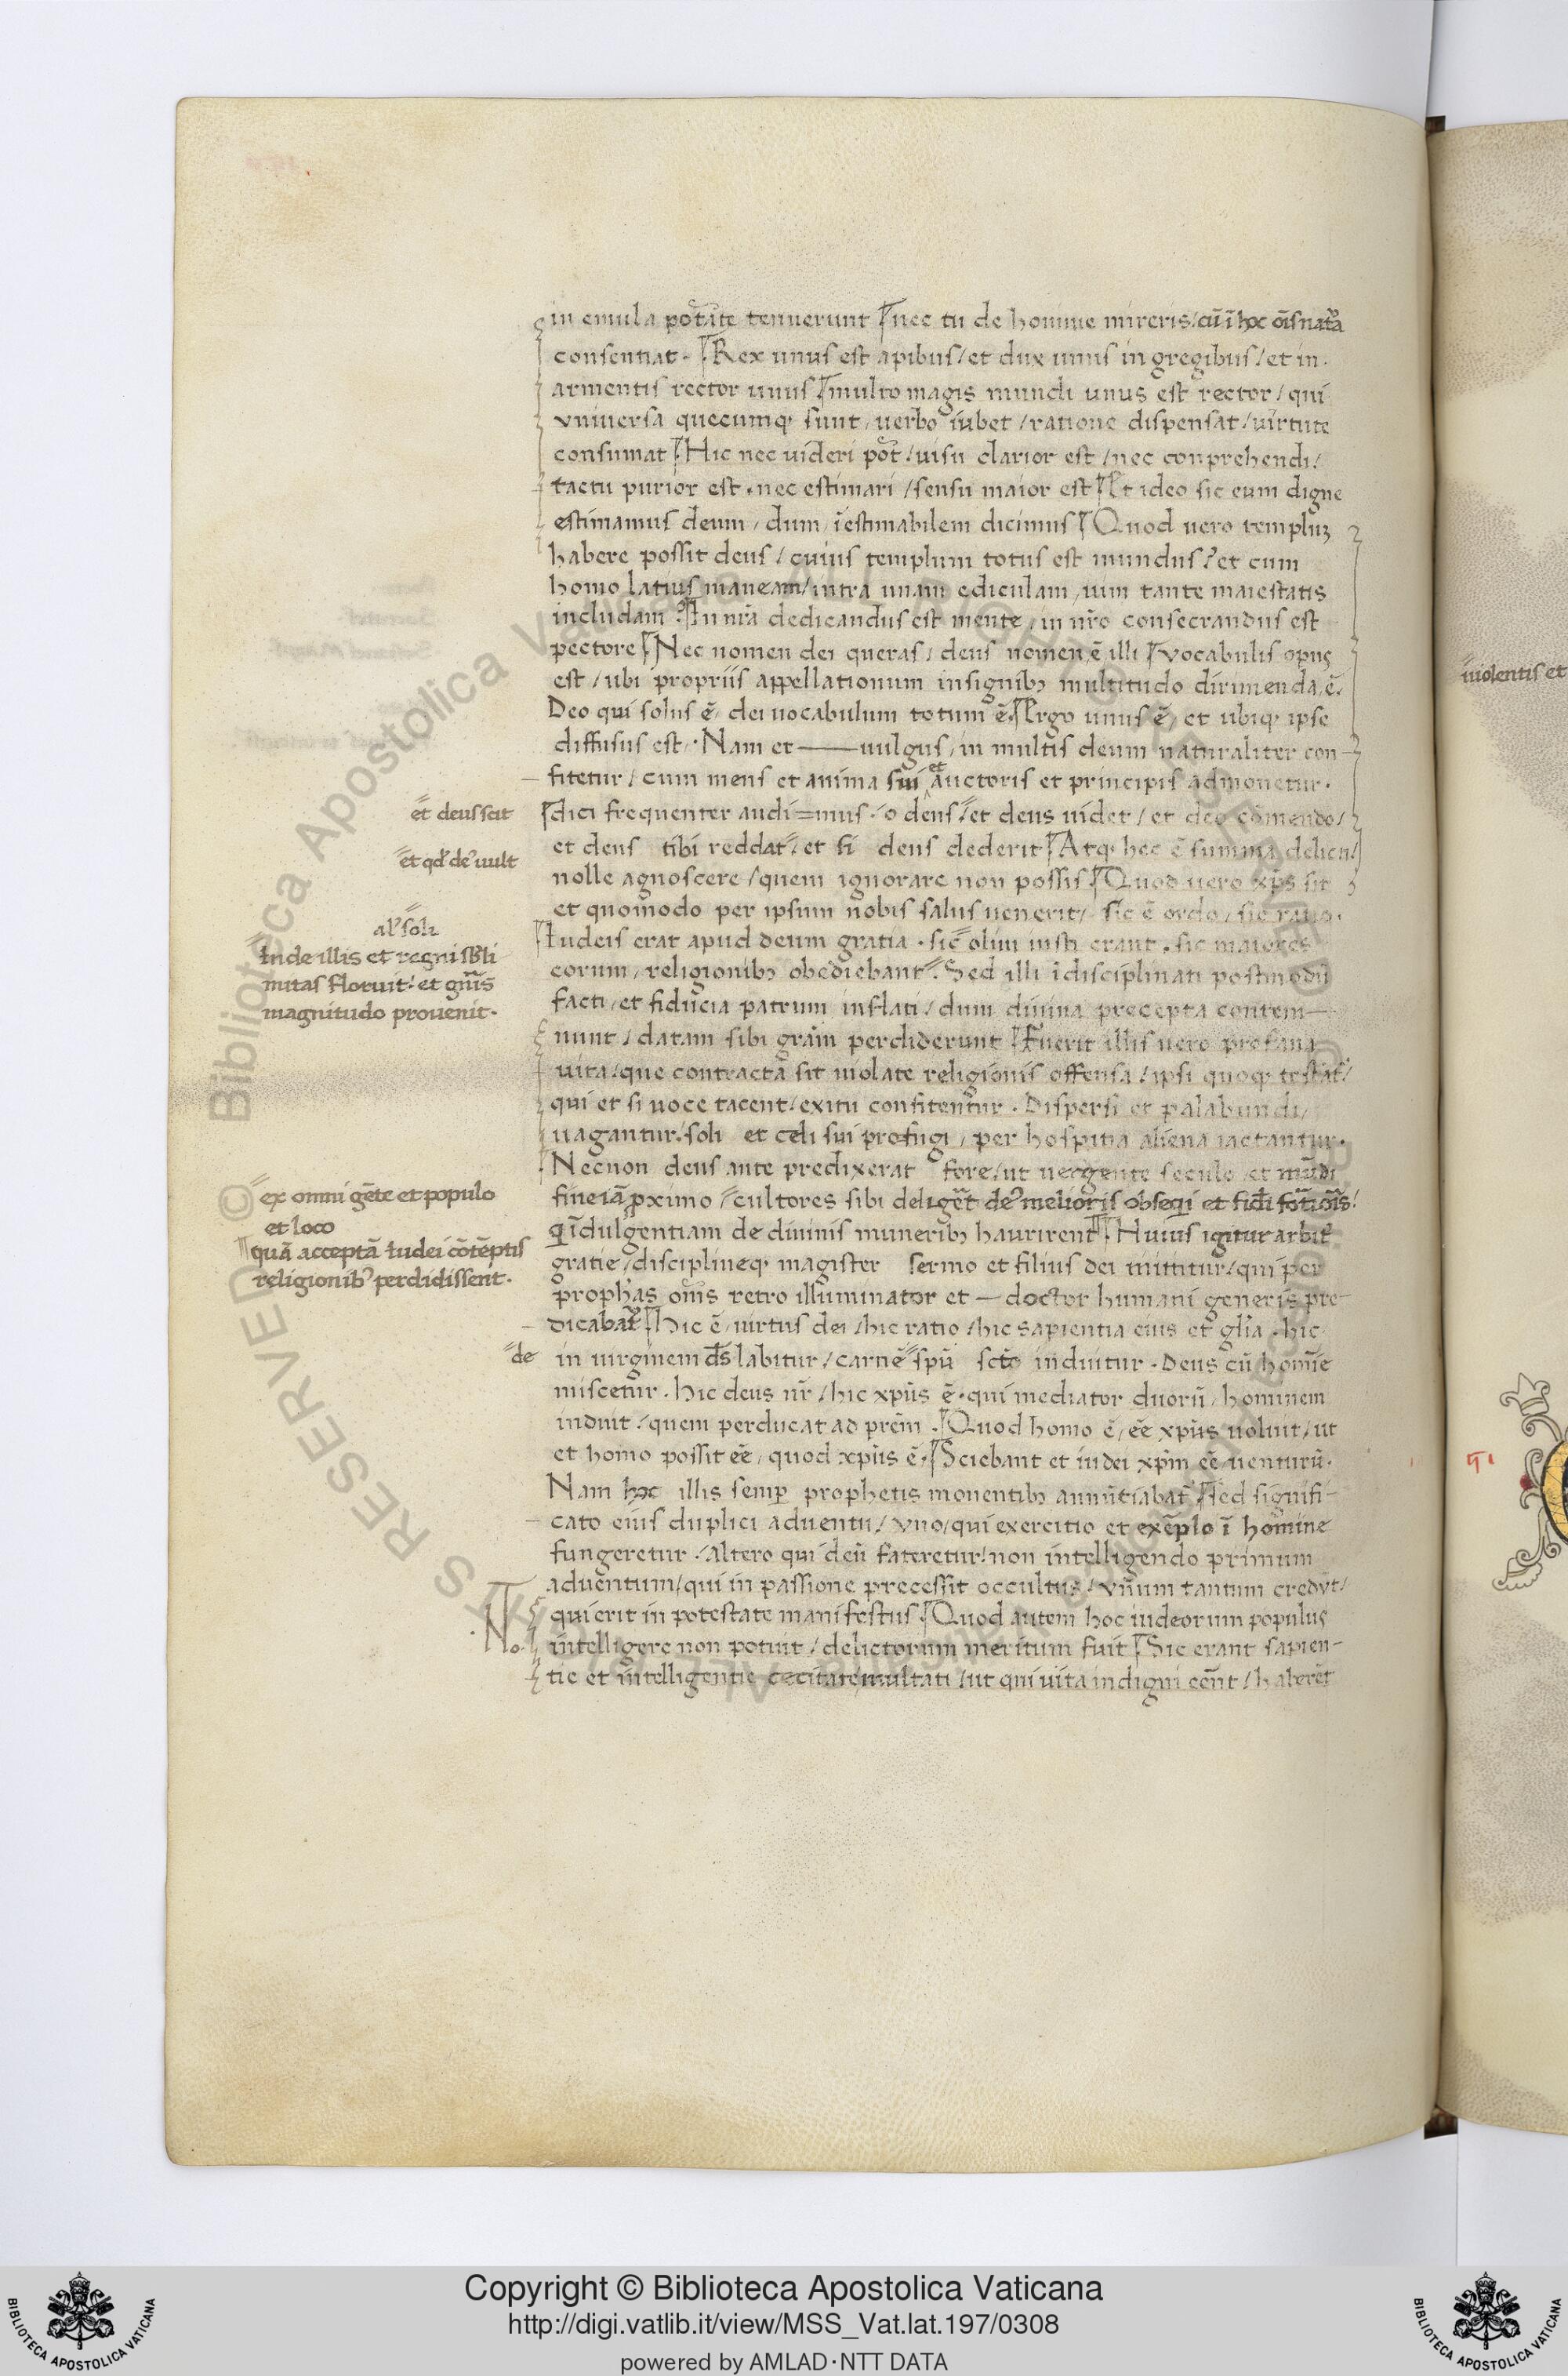 in emula potāte tenuerunt nec tu de homine mireris / cū ī hoc oīs natᵃ
consentiat . Rex unus est apibus / et dux unus in gregibus / et in
armentis rector unus multo magis mundi unus est rector / qui
vniversa quecumq; sunt / uerbo iubet / ratione dispensat / uirtute
consumat Hic nec uideri pōt / uisu clarior est / nec conprehendi /
tactu purior est . nec estimari / sensu maior est Et ideo sic eum digne
estimamus deum / dum īestimabilem dicimus Quod uero templuȝ
habere possit deus / cuius templum totus est mundus ? et cum
homo latius maneam / intra unam ediculam uim tante maiestatis
includam ? In nr̄a dedicandus est mente / in nr̄o consecrandus est
pectore Nec nomen dei queras / deus nomen ē illi vocabulis opus
est / ubi propriis appellationum insignibȝ multitudo dirimenda ē .
Deo qui solus ē / dei uocabulum totum ē . Ergo unus ē / et ubiq; ipse
diffusus est . Nam et — uulgus / in multis deum naturaliter con-
fitetur / cum mens et anima sui et auctoris et principis admonetur .
dici frequenter audi=mus . o deus / et deus uidet / et deo cōmendo /
et deus scit
et deus tibi reddat / et si deus dederit Atq; hec ē summa delicti /
et qd' de' uult
nolle agnoscere / quem ignorare non possis Quod uero xp̄s sit
et quomodo per ipsum nobis salus uenerit / sic ē ordo / sic ratio .
al' soli
Iudeis erat apud deum gratia . sic olim iusti erant . sic maiores
Inde illis et regni sbli
mitas floruit / et gn̄is
magnitudo prouenit .
eorum / religionibȝ obediebant . Sed illi īdisciplinati postmodū
facti / et fiducia patrum inflati / dum diuina precepta contem-
nunt / datam sibi gr̄am perdiderunt Fuerit illis uero profana
uita / que contracta sit uiolate religionis offensa / ipsi quoq; testāt' /
qui et si uoce tacent / exitu confitentur . Dispersi et palabundi /
uagantur / soli et celi sui profugi / per hospitia aliena iactantur .
Necnon deus ante predixerat fore / ut uergente seculo / et mūdi
fine iā pximo / cultores sibi deligēt de' melioris obseqi et fidi fotiōīs /
ex omni gēte et populo
et loco
q īdulgentiam de diuinis muneribȝ haurirent Huius igitur arbit'
quā acceptā Iudei cōtēptis
religionib' perdidissent .
gratie / discipline q; magister sermo et filius dei mittitur / qui per
proph'as om̄s retro illuminator et — doctor humani generis pre-
dicabat' Hic ē / uirtus dei / hic ratio / hic sapientia eius et gl'ia . hic
de
in uirginem dīs labitur / carnē spū sctō induitur . Deus cū homīe
miscetur . hic deus nr̄ / hic xp̄us ē . qui mediator duorū / hominem
induit / quem perducat ad prēm . Quod homo ē / eē xp̄us uoluit / ut
et homo possit eē / quod xp̄us ē . Sciebant et iudei xp̄m eē uenturū .
Nam hoc illis semp prophetis monentibȝ annūtiabat' sed signifi-
cato eius duplici aduentu / vno / qui exercitio et exēplo ī homine
fungeretur . Altero qui deū fateretur / non intelligendo primum
aduentum / qui in passione precessit occultus / vnum tantum credūt /
qui erit in potestate manifestus Quod autem hoc iudeorum populus
No.
intelligere non potuit / delictorum meritum fuit Sic erant sapien-
tie et intelligentie cecitate multati / ut qui uita indigni eēnt / haberēt
uiolentis et
Copyright © Biblioteca Apostolica Vaticana
http://digi.vatlib.it/view/MSS_Vat.lat.197/0308
powered by AMLAD·NTT DATA
BIBLIOTECA APOSTOLICA VATICANA
BIBLIOTECA APOSTOLICA VATICANA